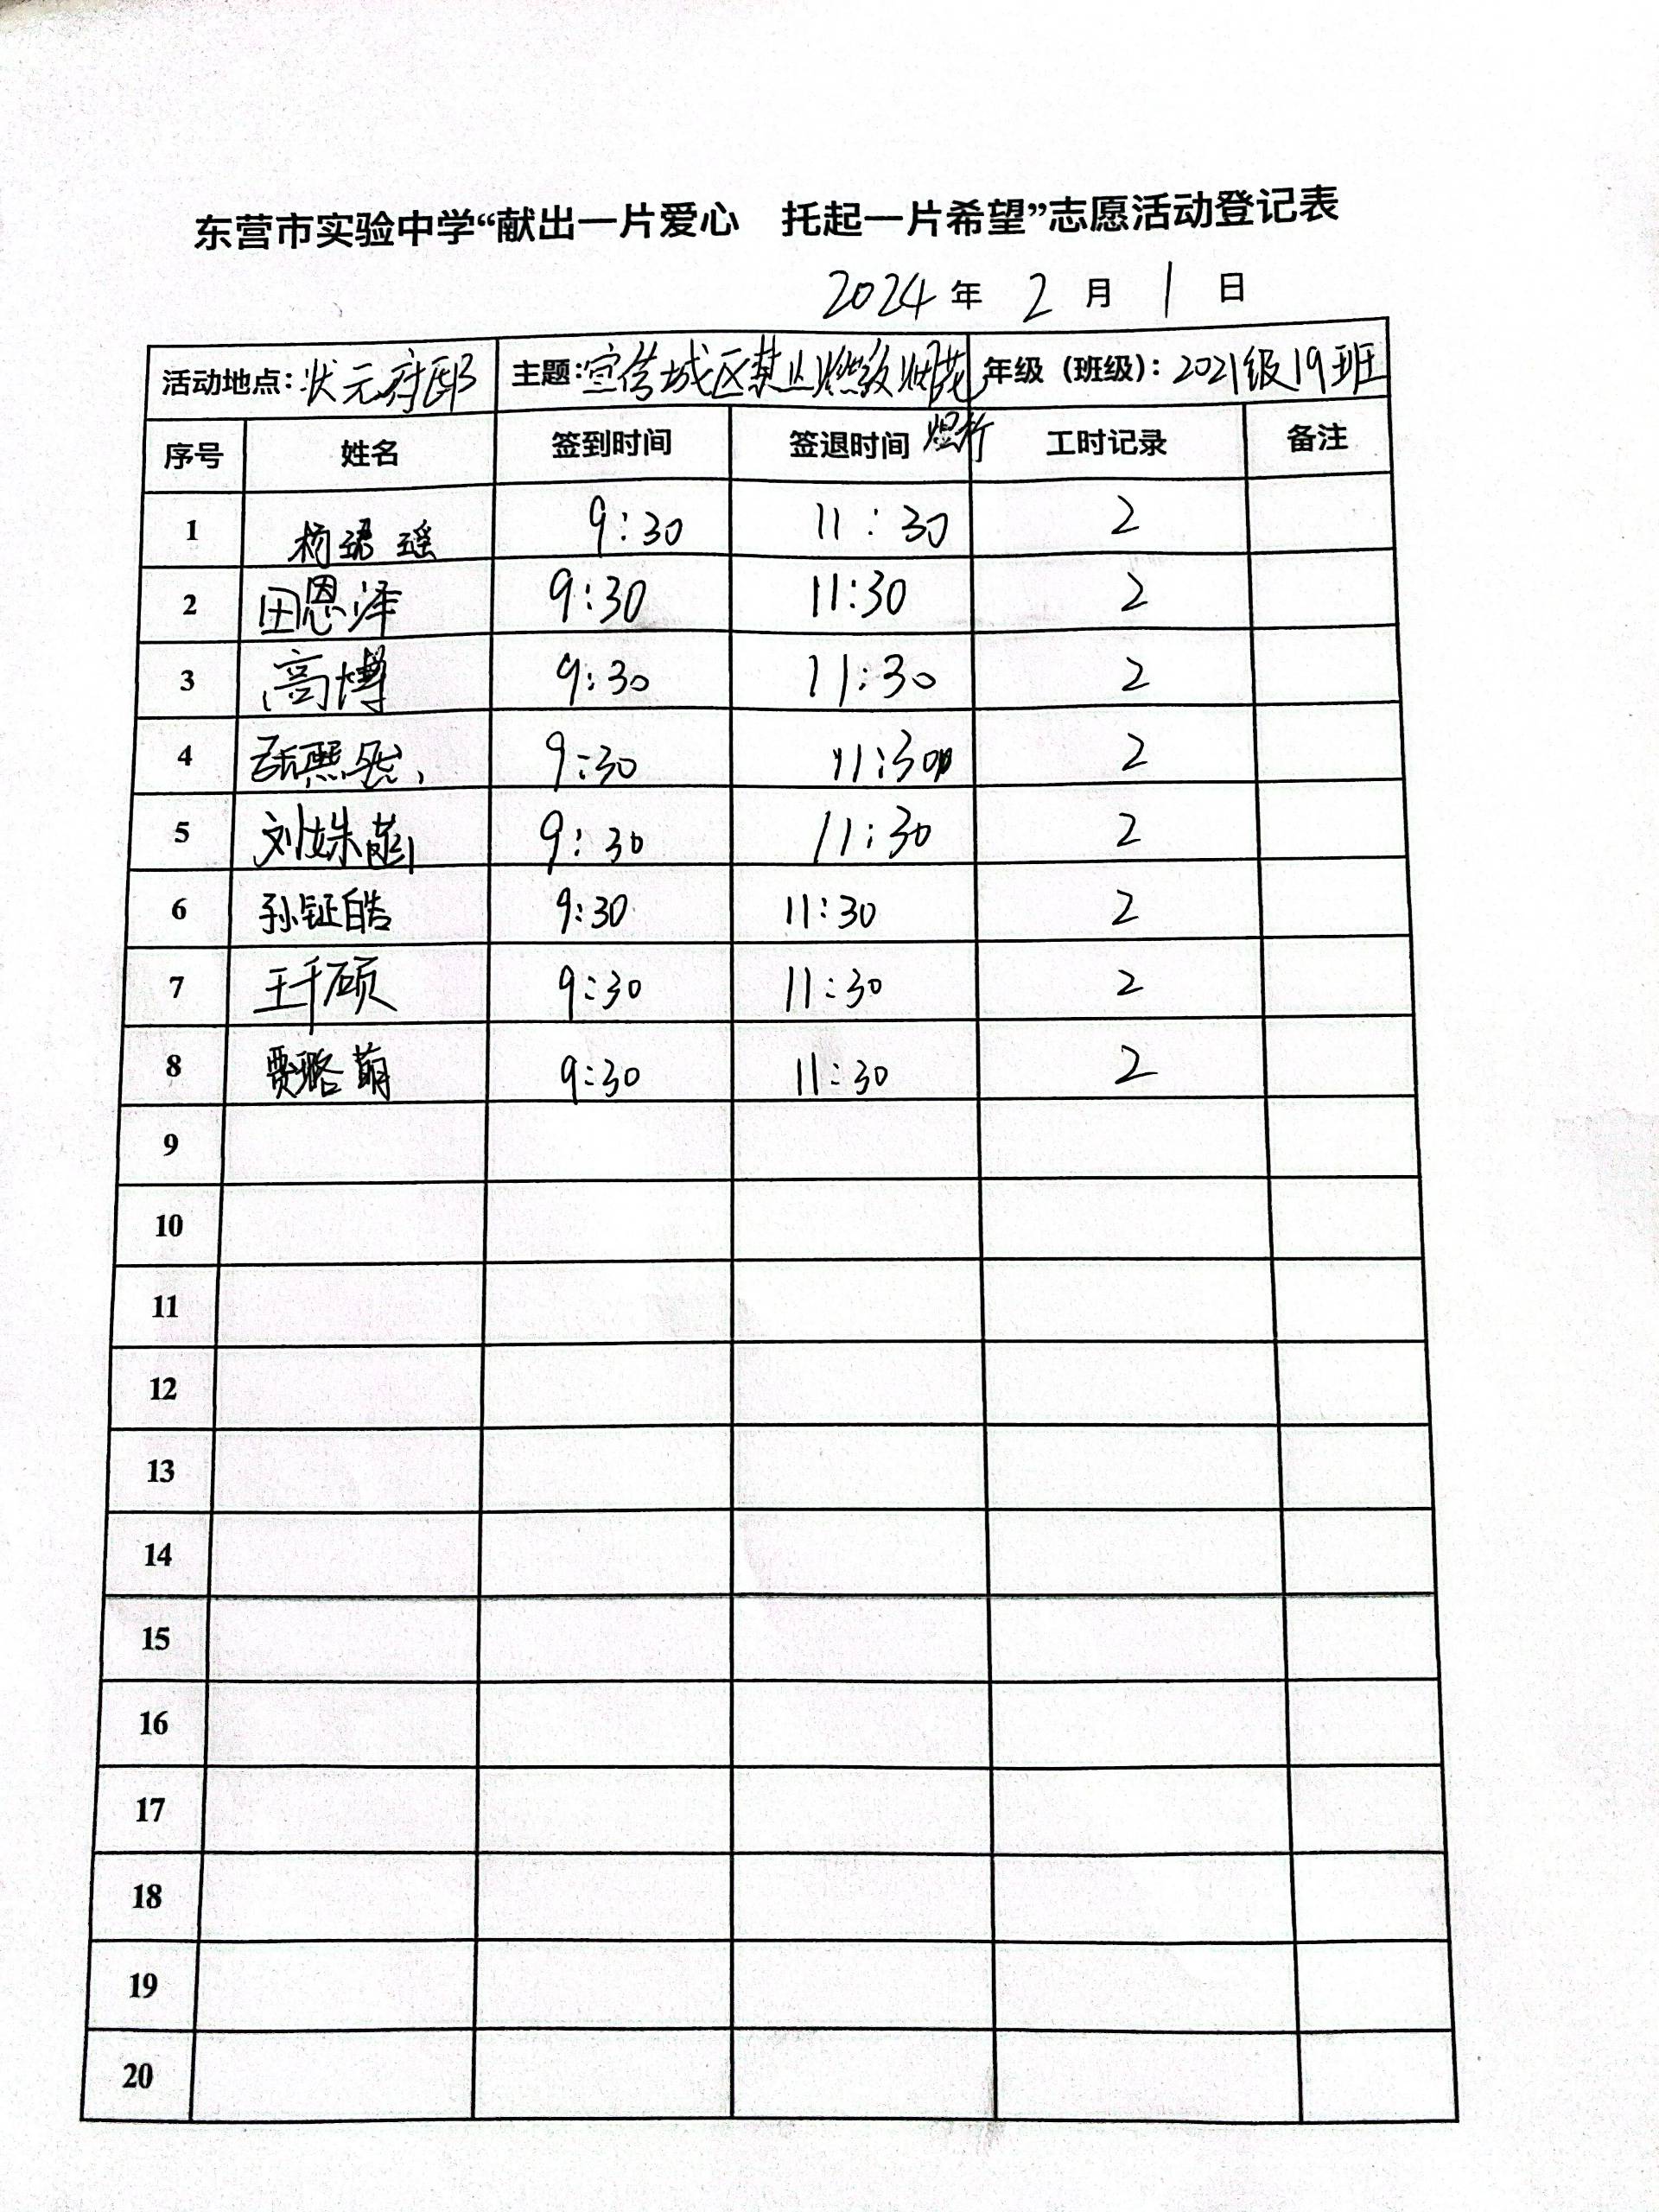 东营市实验中学“献出一片爱心 托起一片希望”志愿活动登记表
2024 年 2 月 1 日
活动地点: 状元府邸 主题: 宣传城区禁止燃放烟花 年级（班级）: 2021级19班
爆竹
序号 姓名 签到时间 签退时间 工时记录 备注
1 杨珺瑶 9:30 11:30 2
2 田恩泽 9:30 11:30 2
3 高博 9:30 11:30 2
4 9:30 11:30 2
5 刘姝 9:30 11:30 2
6 孙钲皓 9:30 11:30 2
7 王千硕 9:30 11:30 2
8 贾璐萌 9:30 11:30 2
9
10
11
12
13
14
15
16
17
18
19
20